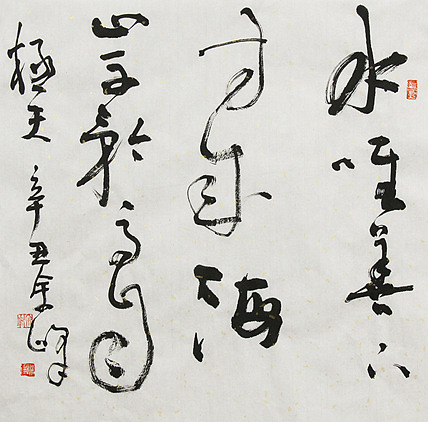 水唯善下
方成海
山不矜高自
極天 辛丑峰